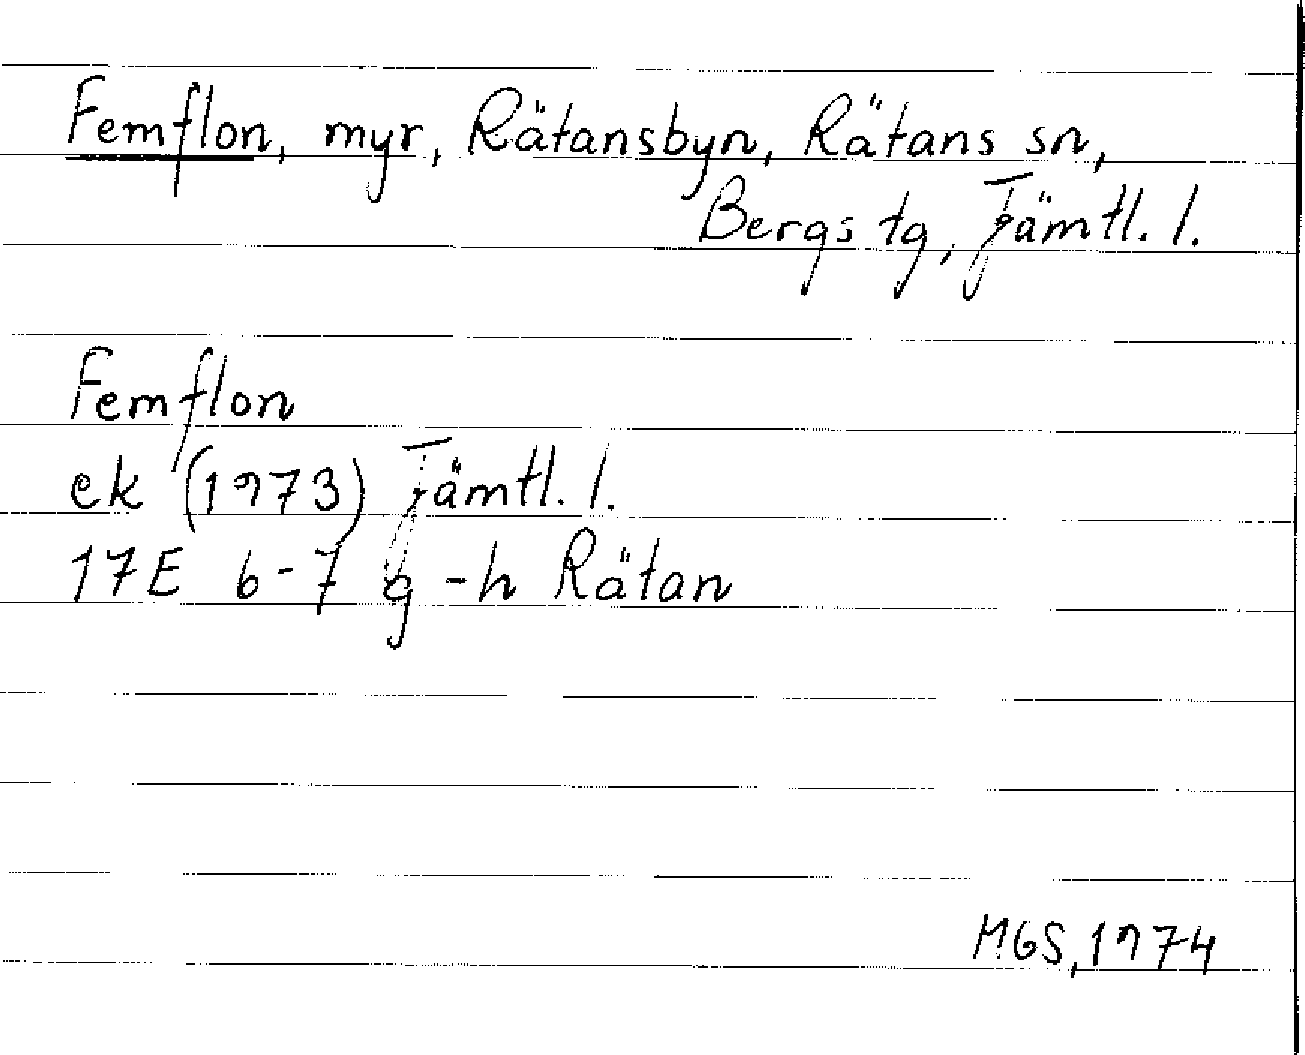 Femflon, myr, Rätansbyn, Rätans sn,
Bergs tg, Jämtl. l.
Femflon
ek (1973) Jämtl. l.
17E 6-7 g-h Rätan
MGS, 1974